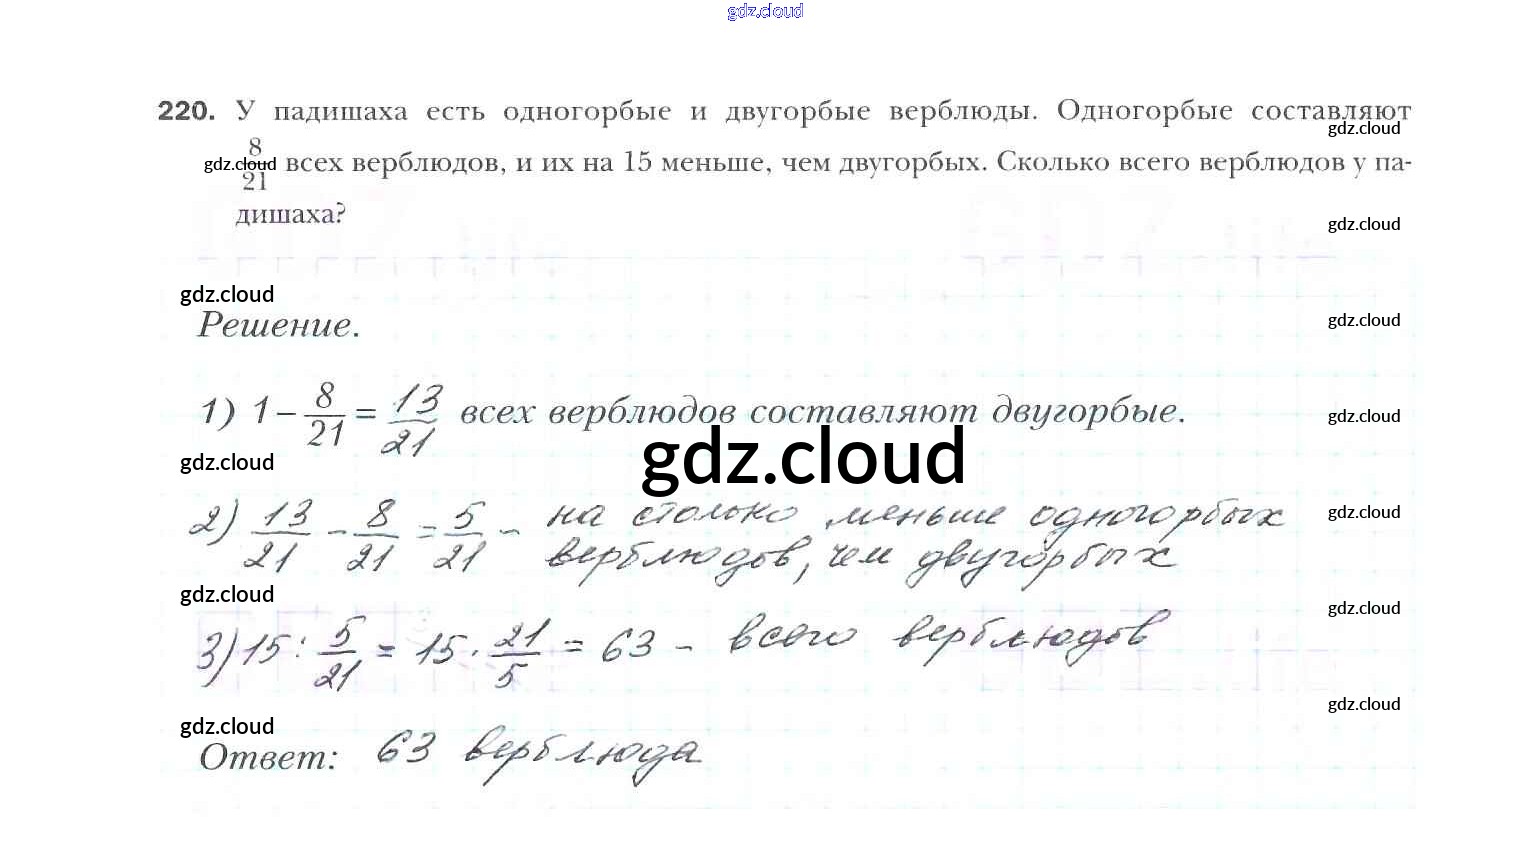 gdz.cloud
220. У падишаха есть одногорбые и двугорбые верблюды. Одногорбые составляют
gdz.cloud
8/21 всех верблюдов, и их на 15 меньше, чем двугорбых. Сколько всего верблюдов у па-
gdz.cloud
дишаха?
gdz.cloud
gdz.cloud
Решение.
gdz.cloud
1) 1 – 8/21 = 13/21 всех верблюдов составляют двугорбые.
gdz.cloud
gdz.cloud
gdz.cloud
2) 13/21 - 8/21 = 5/21 - на столько меньше одногорбых
gdz.cloud
верблюдов, чем двугорбых
gdz.cloud
gdz.cloud
3) 15 : 5/21 = 15 · 21/5 = 63 - всего верблюдов
gdz.cloud
gdz.cloud
Ответ: 63 верблюда